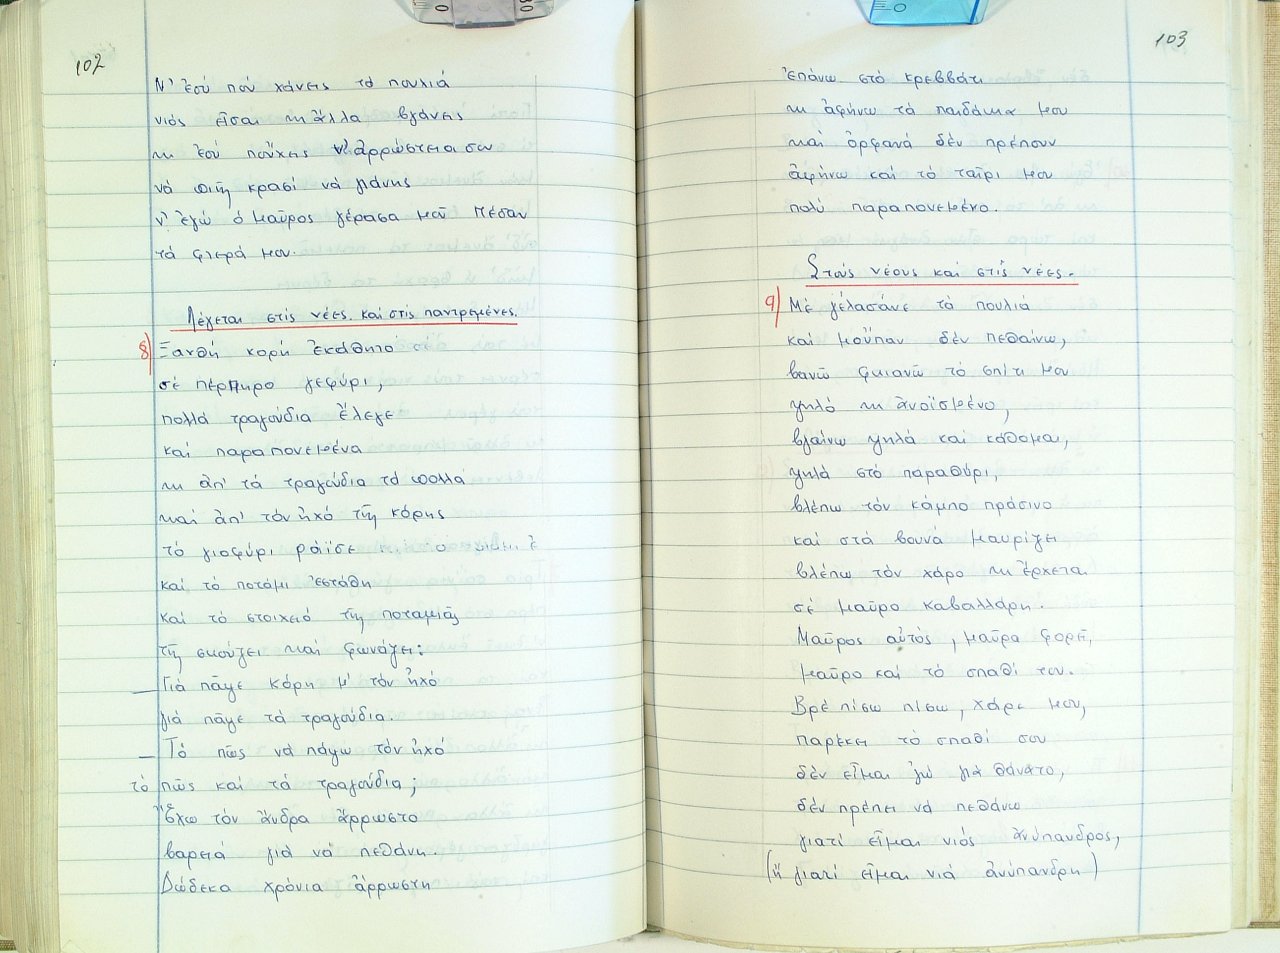 102
Κ' ἐσύ πού χάνεις τά πουλιά
νιός εἶσαι κι ἄλλα βγάνεις
κι ἐσύ πούχεις ἀρρώστεια σου
νά πιῇς κρασί νά γιάνῃς
κ' ἐγώ ὁ μαῦρος γέρασα μοῦ πέσαν
τά φτερά μου.
Λέγεται στίς νέες. καί στίς παντρεμένες.
8) Ξανθή κορή ἐκάθητο
σέ πέρπυρο γεφύρι,
πολλά τραγούδια ἔλεγε
καί παραπονεμένα
κι ἀπ' τά τραγούδια τά πολλά
καί ἀπ' τόν ἠχό τῆς κόρης
τό γιοφύρι ράϊσε
καί τό ποτάμι ἐστάθη
καί τό στοιχειό τῆς ποταμιᾶς
τῆς σκούζει καί φωνάζει:
— Γιά πᾶψε κόρη μ' τόν ἠχό
γιά πᾶψε τά τραγούδια.
— Τό πῶς νά πάψω τόν ἠχό
τό πῶς καί τά τραγούδια;
Ἔχω τόν ἄνδρα ἄρρωστο
βαρειά γιά νά πεθάνῃ.
Δώδεκα χρόνια ἀρρωστη
103
ἐπάνω στό κρεββάτι
κι ἀφήνω τά παιδάκια μου
καί ὀρφανά δέν πρέπουν
ἀφήνω καί τό ταῖρι μου
πολύ παραπονεμένο.
Στούς νέους καί στίς νέες.
9) Μέ γέλασάνε τά πουλιά
καί μοὔπαν δέν πεθαίνω,
βανῶ φκιανῶ τό σπίτι μου
ψηλό κι ἀνοϊσμένο,
βγαίνω ψηλά καί κάθομαι,
ψηλά στό παραθύρι,
βλέπω τόν κάμπο πράσινο
καί στά βουνά μαυρίζει
βλέπω τόν χάρο κι ἔρχεται
σέ μαῦρο καβαλλάρη.
Μαῦρος αὐτός, μαῦρα φορεῖ,
μαῦρο καί τό σπαθί του.
Βρέ πίσω πίσω, χάρε μου,
παρέκει τό σπαθί σου
δέν εἶμαι 'γώ γιά θάνατο,
δέν πρέπει νά πεθάνω
γιατί εἶμαι νιός ἀνύπανδρος,
(ἤ γιατί εἶμαι νιά ἀνύπανδρη)